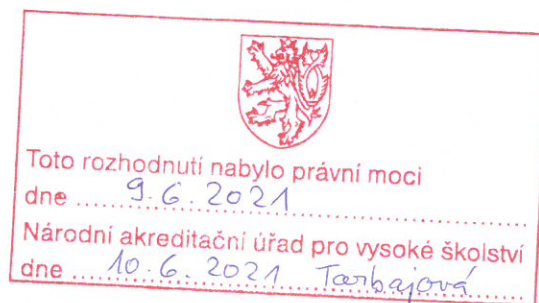 Toto rozhodnutí nabylo právní moci
dne ..... 9.6.2021 .....
Národní akreditační úřad pro vysoké školství
dne ..... 10.6.2021 Tarbajová .....